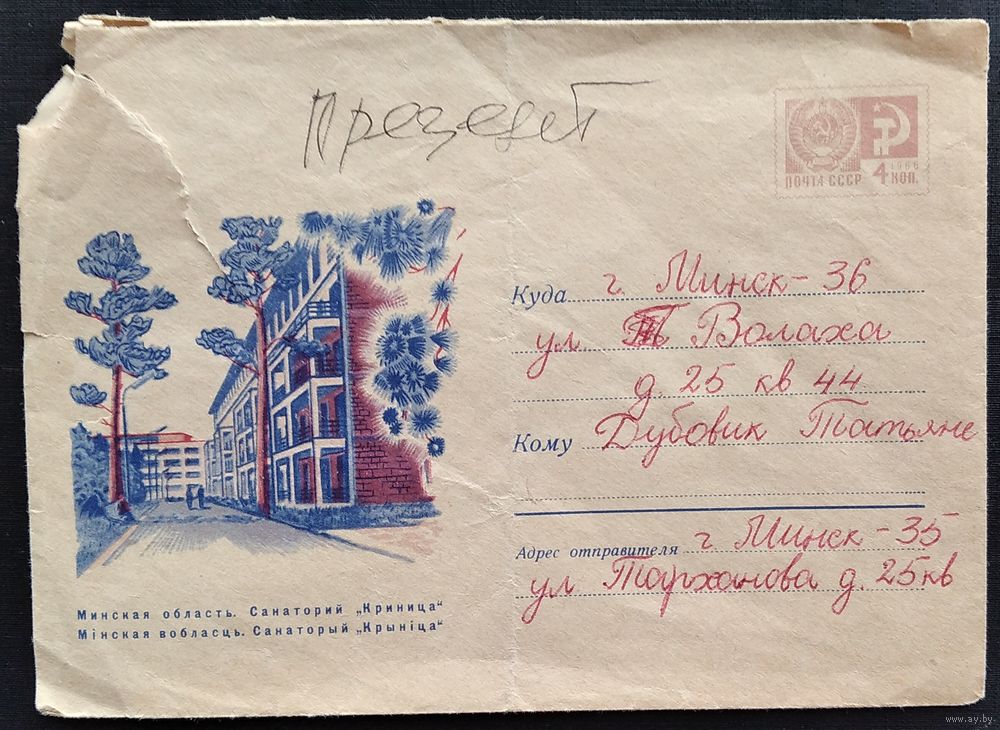 Презент
ПОЧТА СССР 4 1966 КОП.
Куда г. Минск-36
ул. Т Волаха
д. 25 кв 44
Кому Дубовик Татьяне
Адрес отправителя г Минск-35
ул Тарханова д. 25кв
Минская область. Санаторий „Криница"
Мінская вобласць. Санаторый „Крыніца"
www.ay.by